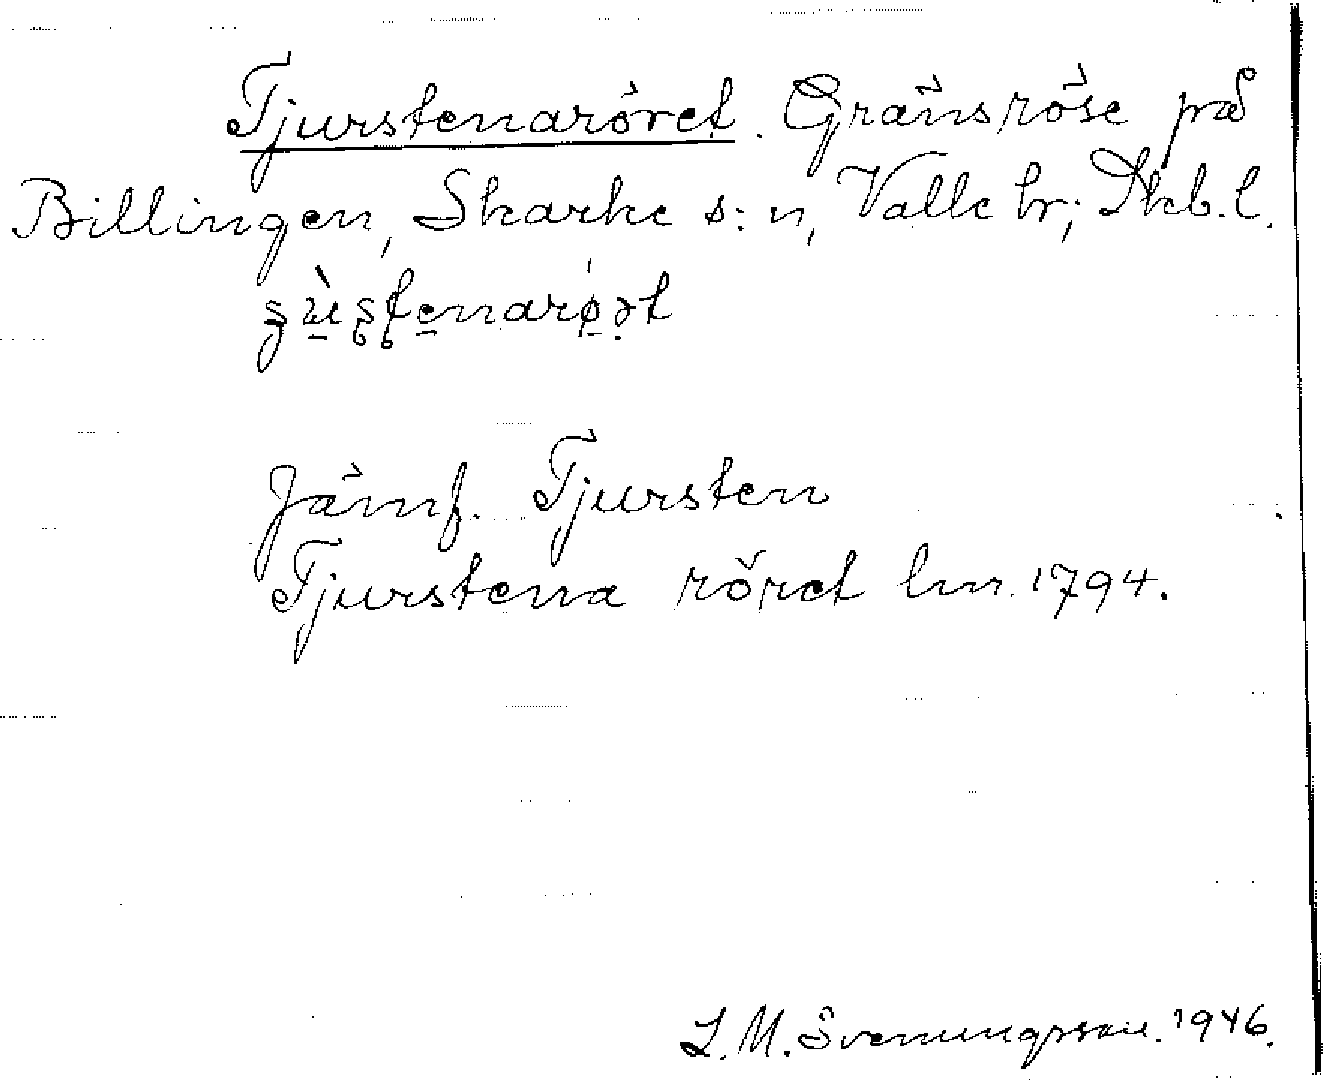 Tjurstenaröret. Gränsröse på
Billingen, Skarke s:n, Valle hr; Skb.l.
Jämf. Tjursten
Tjurstena röret lm. 1794.
L.M. Svenungsson. 1946.